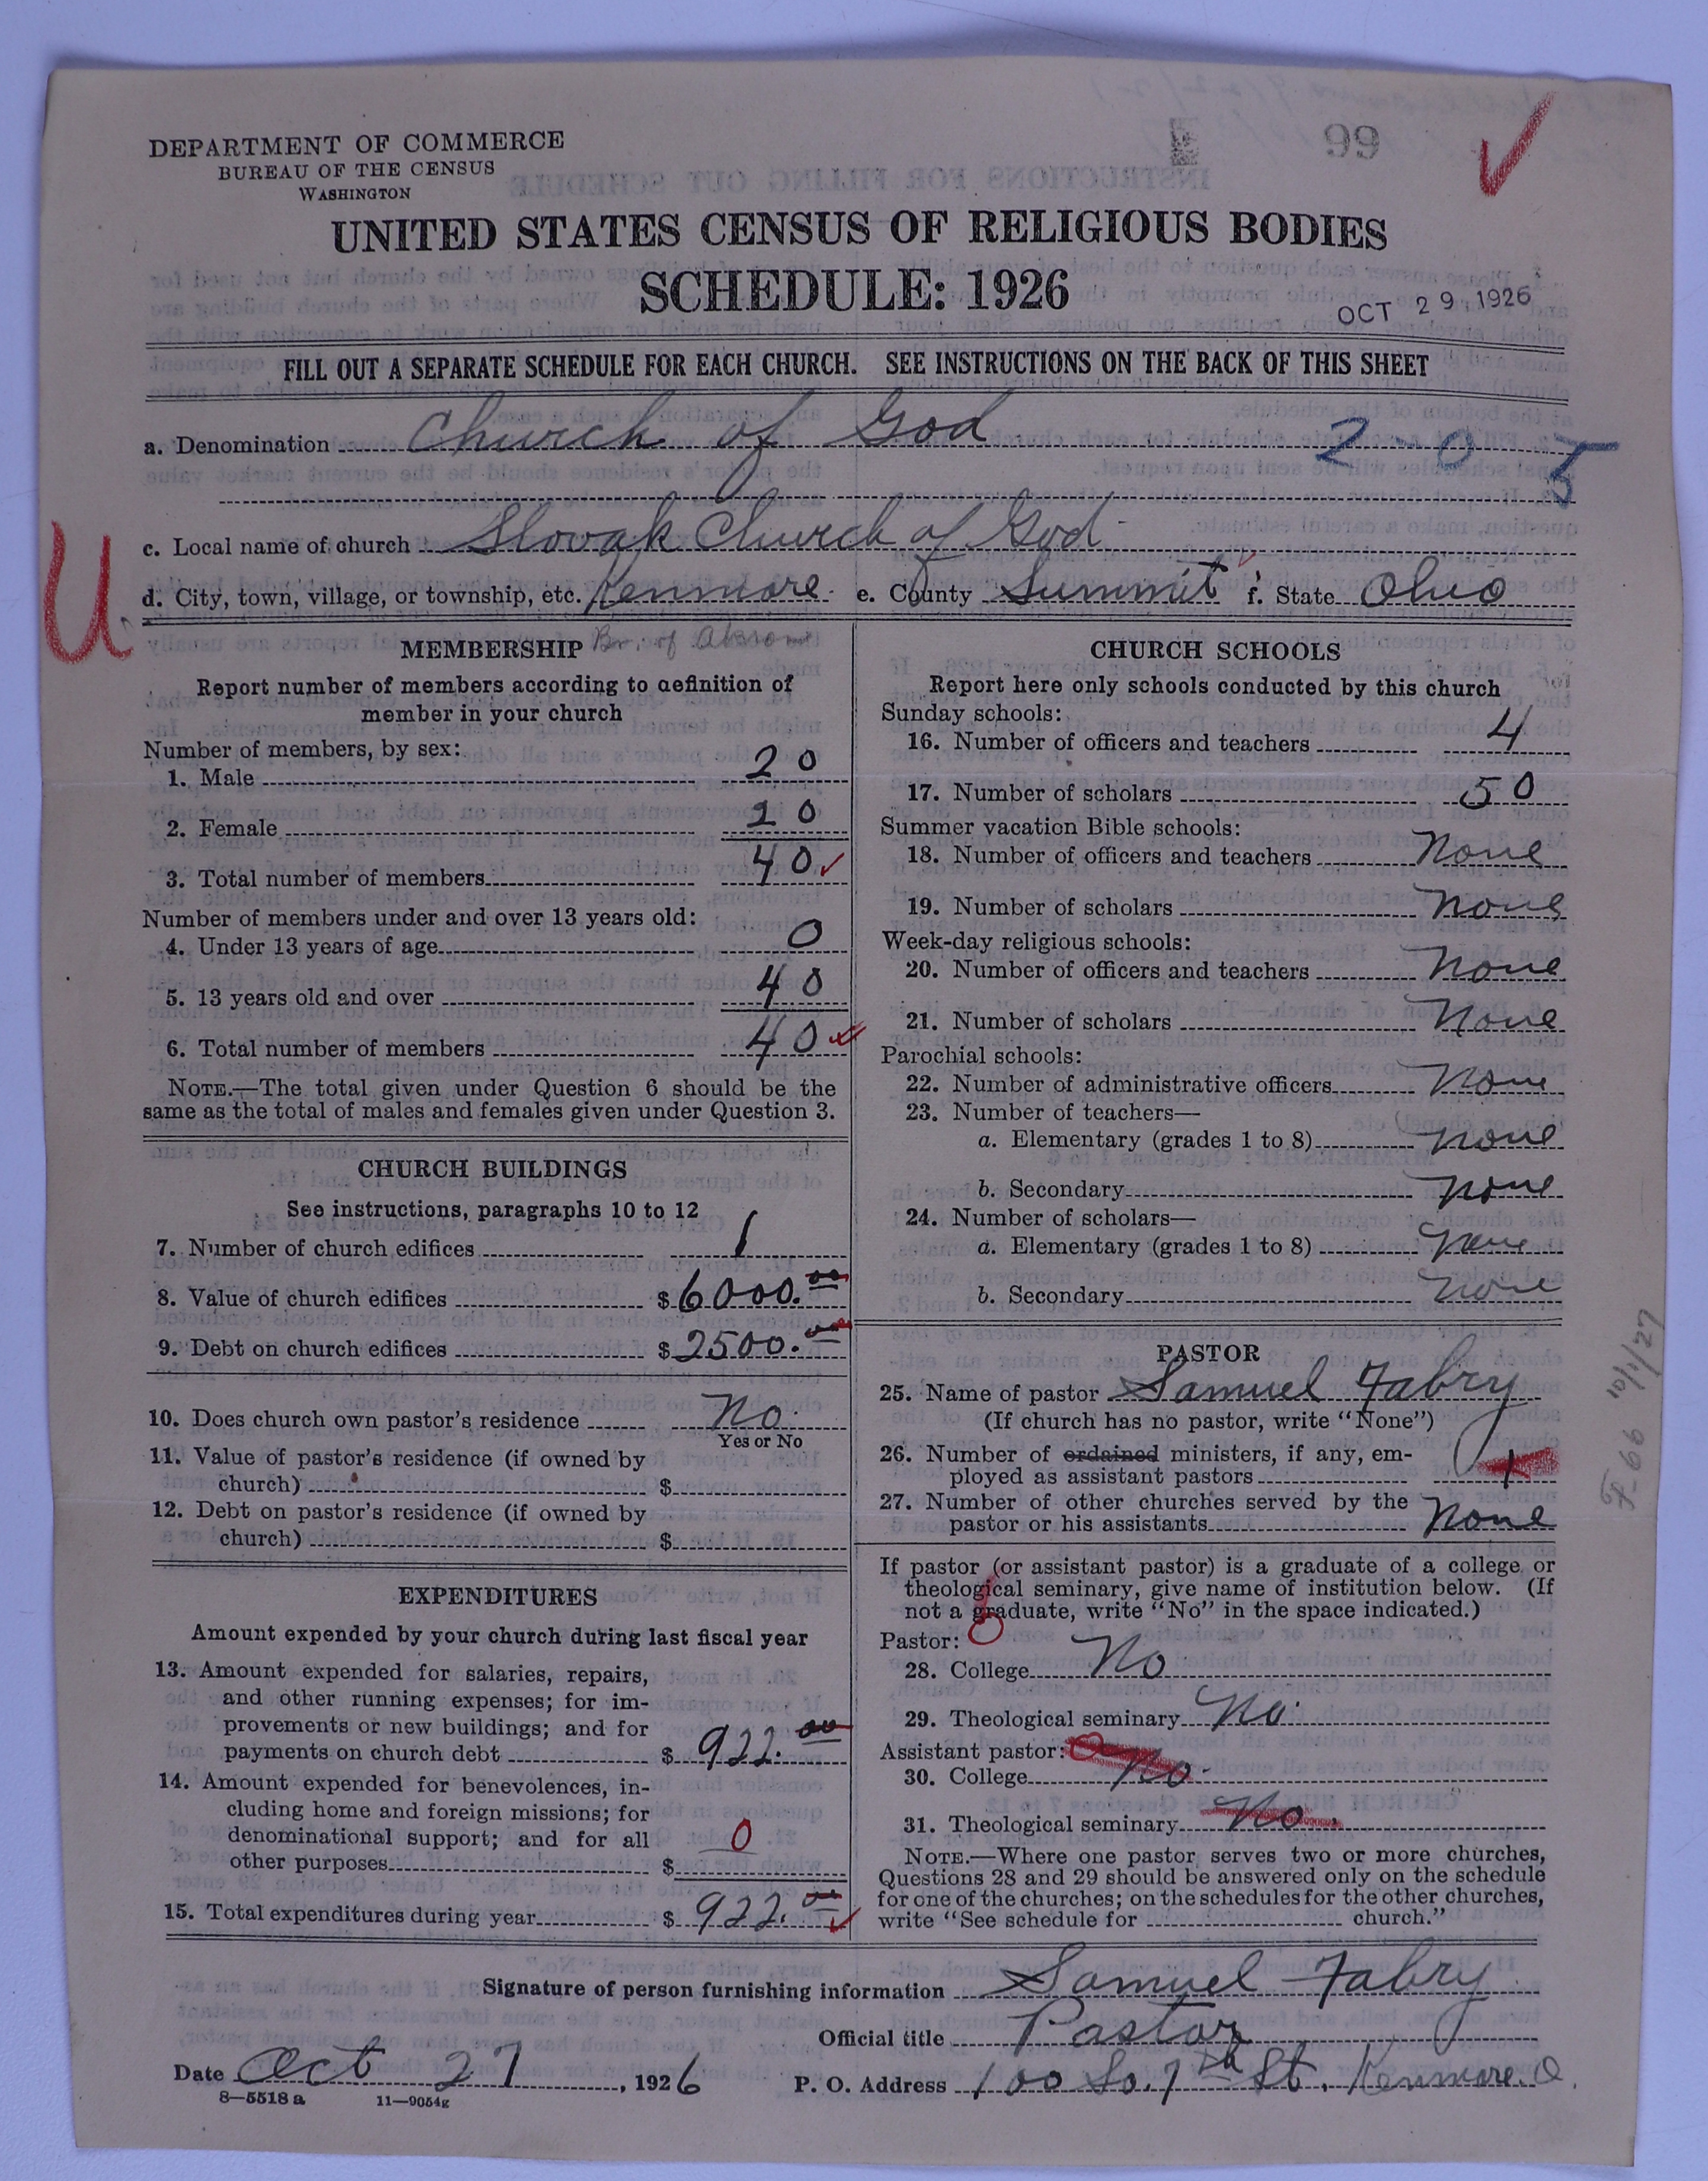 99
DEPARTMENT OF COMMERCE
BUREAU OF THE CENSUS
WASHINGTON
UNITED STATES CENSUS OF RELIGIOUS BODIES
SCHEDULE: 1926
OCT 29 1926
FILL OUT A SEPARATE SCHEDULE FOR EACH CHURCH. SEE INSTRUCTIONS ON THE BACK OF THIS SHEET
a. Denomination Church of God
2-05
c. Local name of church Slovak Church of God
U
d. City, town, village, or township, etc. Kenmore e. County Summit f. State Ohio
MEMBERSHIP Br. of Akron
Report number of members according to definition of
member in your church
Number of members, by sex:
1. Male 20
2. Female 20
3. Total number of members 40
Number of members under and over 13 years old:
4. Under 13 years of age 0
5. 13 years old and over 40
6. Total number of members 40
NOTE.—The total given under Question 6 should be the
same as the total of males and females given under Question 3.
CHURCH BUILDINGS
See instructions, paragraphs 10 to 12
7. Number of church edifices 1
8. Value of church edifices $6000.00
9. Debt on church edifices $2500.00
10. Does church own pastor's residence No
Yes or No
11. Value of pastor's residence (if owned by
church) $
12. Debt on pastor's residence (if owned by
church) $
EXPENDITURES
Amount expended by your church during last fiscal year
13. Amount expended for salaries, repairs,
and other running expenses; for im-
provements or new buildings; and for
payments on church debt $ 922.00
14. Amount expended for benevolences, in-
cluding home and foreign missions; for
denominational support; and for all
other purposes $ 0
15. Total expenditures during year $ 922.00
CHURCH SCHOOLS
Report here only schools conducted by this church
Sunday schools:
16. Number of officers and teachers 4
17. Number of scholars 50
Summer vacation Bible schools:
18. Number of officers and teachers None
19. Number of scholars None
Week-day religious schools:
20. Number of officers and teachers None
21. Number of scholars None
Parochial schools:
22. Number of administrative officers None
23. Number of teachers—
a. Elementary (grades 1 to 8) None
b. Secondary None
24. Number of scholars—
a. Elementary (grades 1 to 8) None
b. Secondary None
PASTOR
25. Name of pastor Samuel Fabry
(If church has no pastor, write "None")
26. Number of ordained ministers, if any, em-
ployed as assistant pastors 1
27. Number of other churches served by the
pastor or his assistants None
If pastor (or assistant pastor) is a graduate of a college or
theological seminary, give name of institution below. (If
not a graduate, write "No" in the space indicated.)
Pastor:
28. College No
29. Theological seminary No
Assistant pastor:
30. College No
31. Theological seminary No
NOTE.—Where one pastor serves two or more churches,
Questions 28 and 29 should be answered only on the schedule
for one of the churches; on the schedules for the other churches,
write "See schedule for church."
Signature of person furnishing information Samuel Fabry
Official title Pastor
Date Oct 27, 1926 P. O. Address 100 So. 7th St. Kenmore. O.
8—5518 a 11—9054g